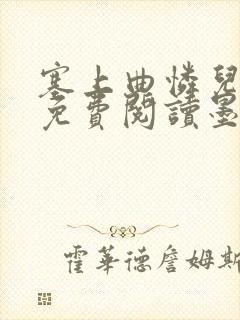 塞上曲憐兒
免費閱讀墨
霍華德詹姆斯